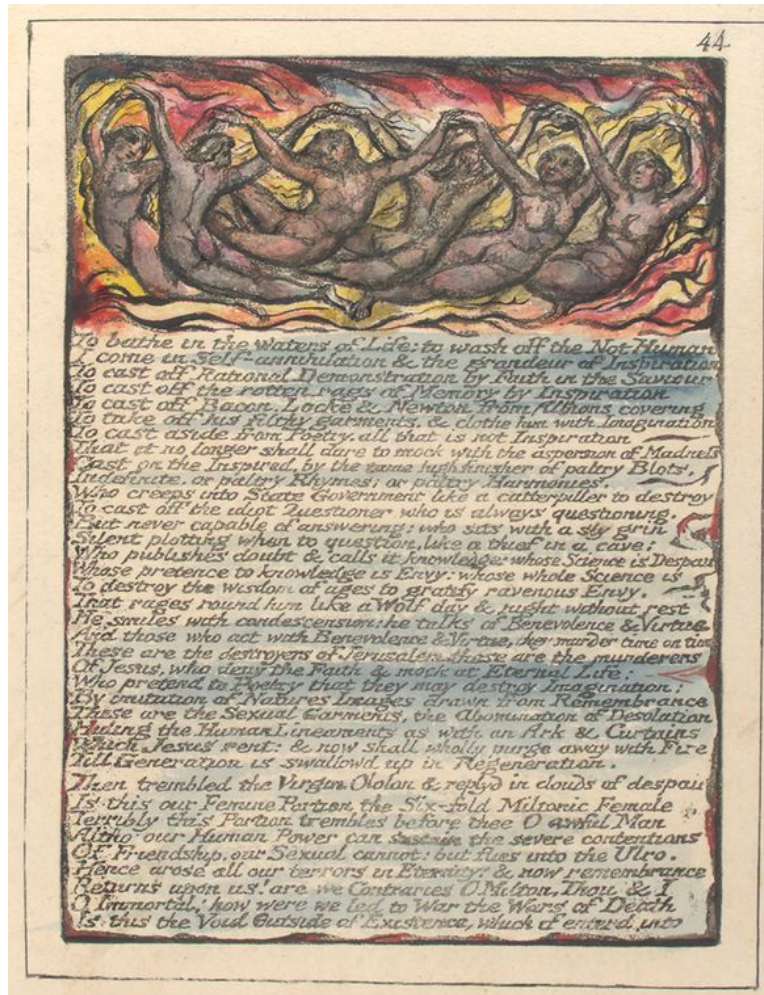 44
To bathe in the Waters of Life; to wash off the Not Human
I come in Self-annihilation & the grandeur of Inspiration
To cast off Rational Demonstration by Faith in the Saviour
To cast off the rotten rags of Memory by Inspiration
To cast off Bacon, Locke & Newton from Albions covering
To take off his filthy garments, & clothe him with Imagination
To cast aside from Poetry, all that is not Inspiration
That it no longer shall dare to mock with the aspersion of Madness
Cast on the Inspired, by the tame high finisher of paltry Blots,
Indefinite, or paltry Rhymes; or paltry Harmonies.
Who creeps into State Government like a catterpiller to destroy
To cast off the idiot Questioner who is always questioning,
But never capable of answering; who sits with a sly grin
Silent plotting when to question, like a thief in a cave;
Who publishes doubt & calls it knowledge; whose Science is Despair
Whose pretence to knowledge is Envy: whose whole Science is
To destroy the wisdom of ages to gratify ravenous Envy.
That rages round him like a Wolf day & night without rest
He smiles with condescension; he talks of Benevolence & Virtue
And those who act with Benevolence & Virtue, they murder time on time
These are the destroyers of Jerusalem, these are the murderers
Of Jesus, who deny the Faith & mock at Eternal Life;
Who pretend to Poetry that they may destroy Imagination;
By imitation of Natures Images drawn from Remembrance
These are the Sexual Garments, the Abomination of Desolation
Hiding the Human Lineaments as with an Ark & Curtains
Which Jesus rent: & now shall wholly purge away with Fire
Till Generation is swallowd up in Regeneration.
Then trembled the Virgin Ololon & replyd in clouds of despair
Is this our Femine Portion the Six-fold Miltonic Female
Terribly this Portion trembles before thee O awful Man
Altho' our Human Power can sustain the severe contentions
Of Friendship, our Sexual cannot: but flies into the Ulro.
Hence arose all our terrors in Eternity! & now remembrance
Returns upon us! are we Contraries O Milton, Thou & I
O Immortal! how were we led to War the Wars of Death
Is this the Void Outside of Existence, which if enterd into